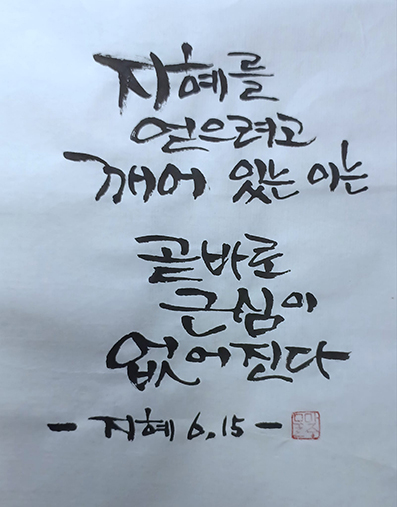 지혜를
얻으려고
깨어 있는 이는
곧바로
근심이
없어진다
- 지혜 6,15 -